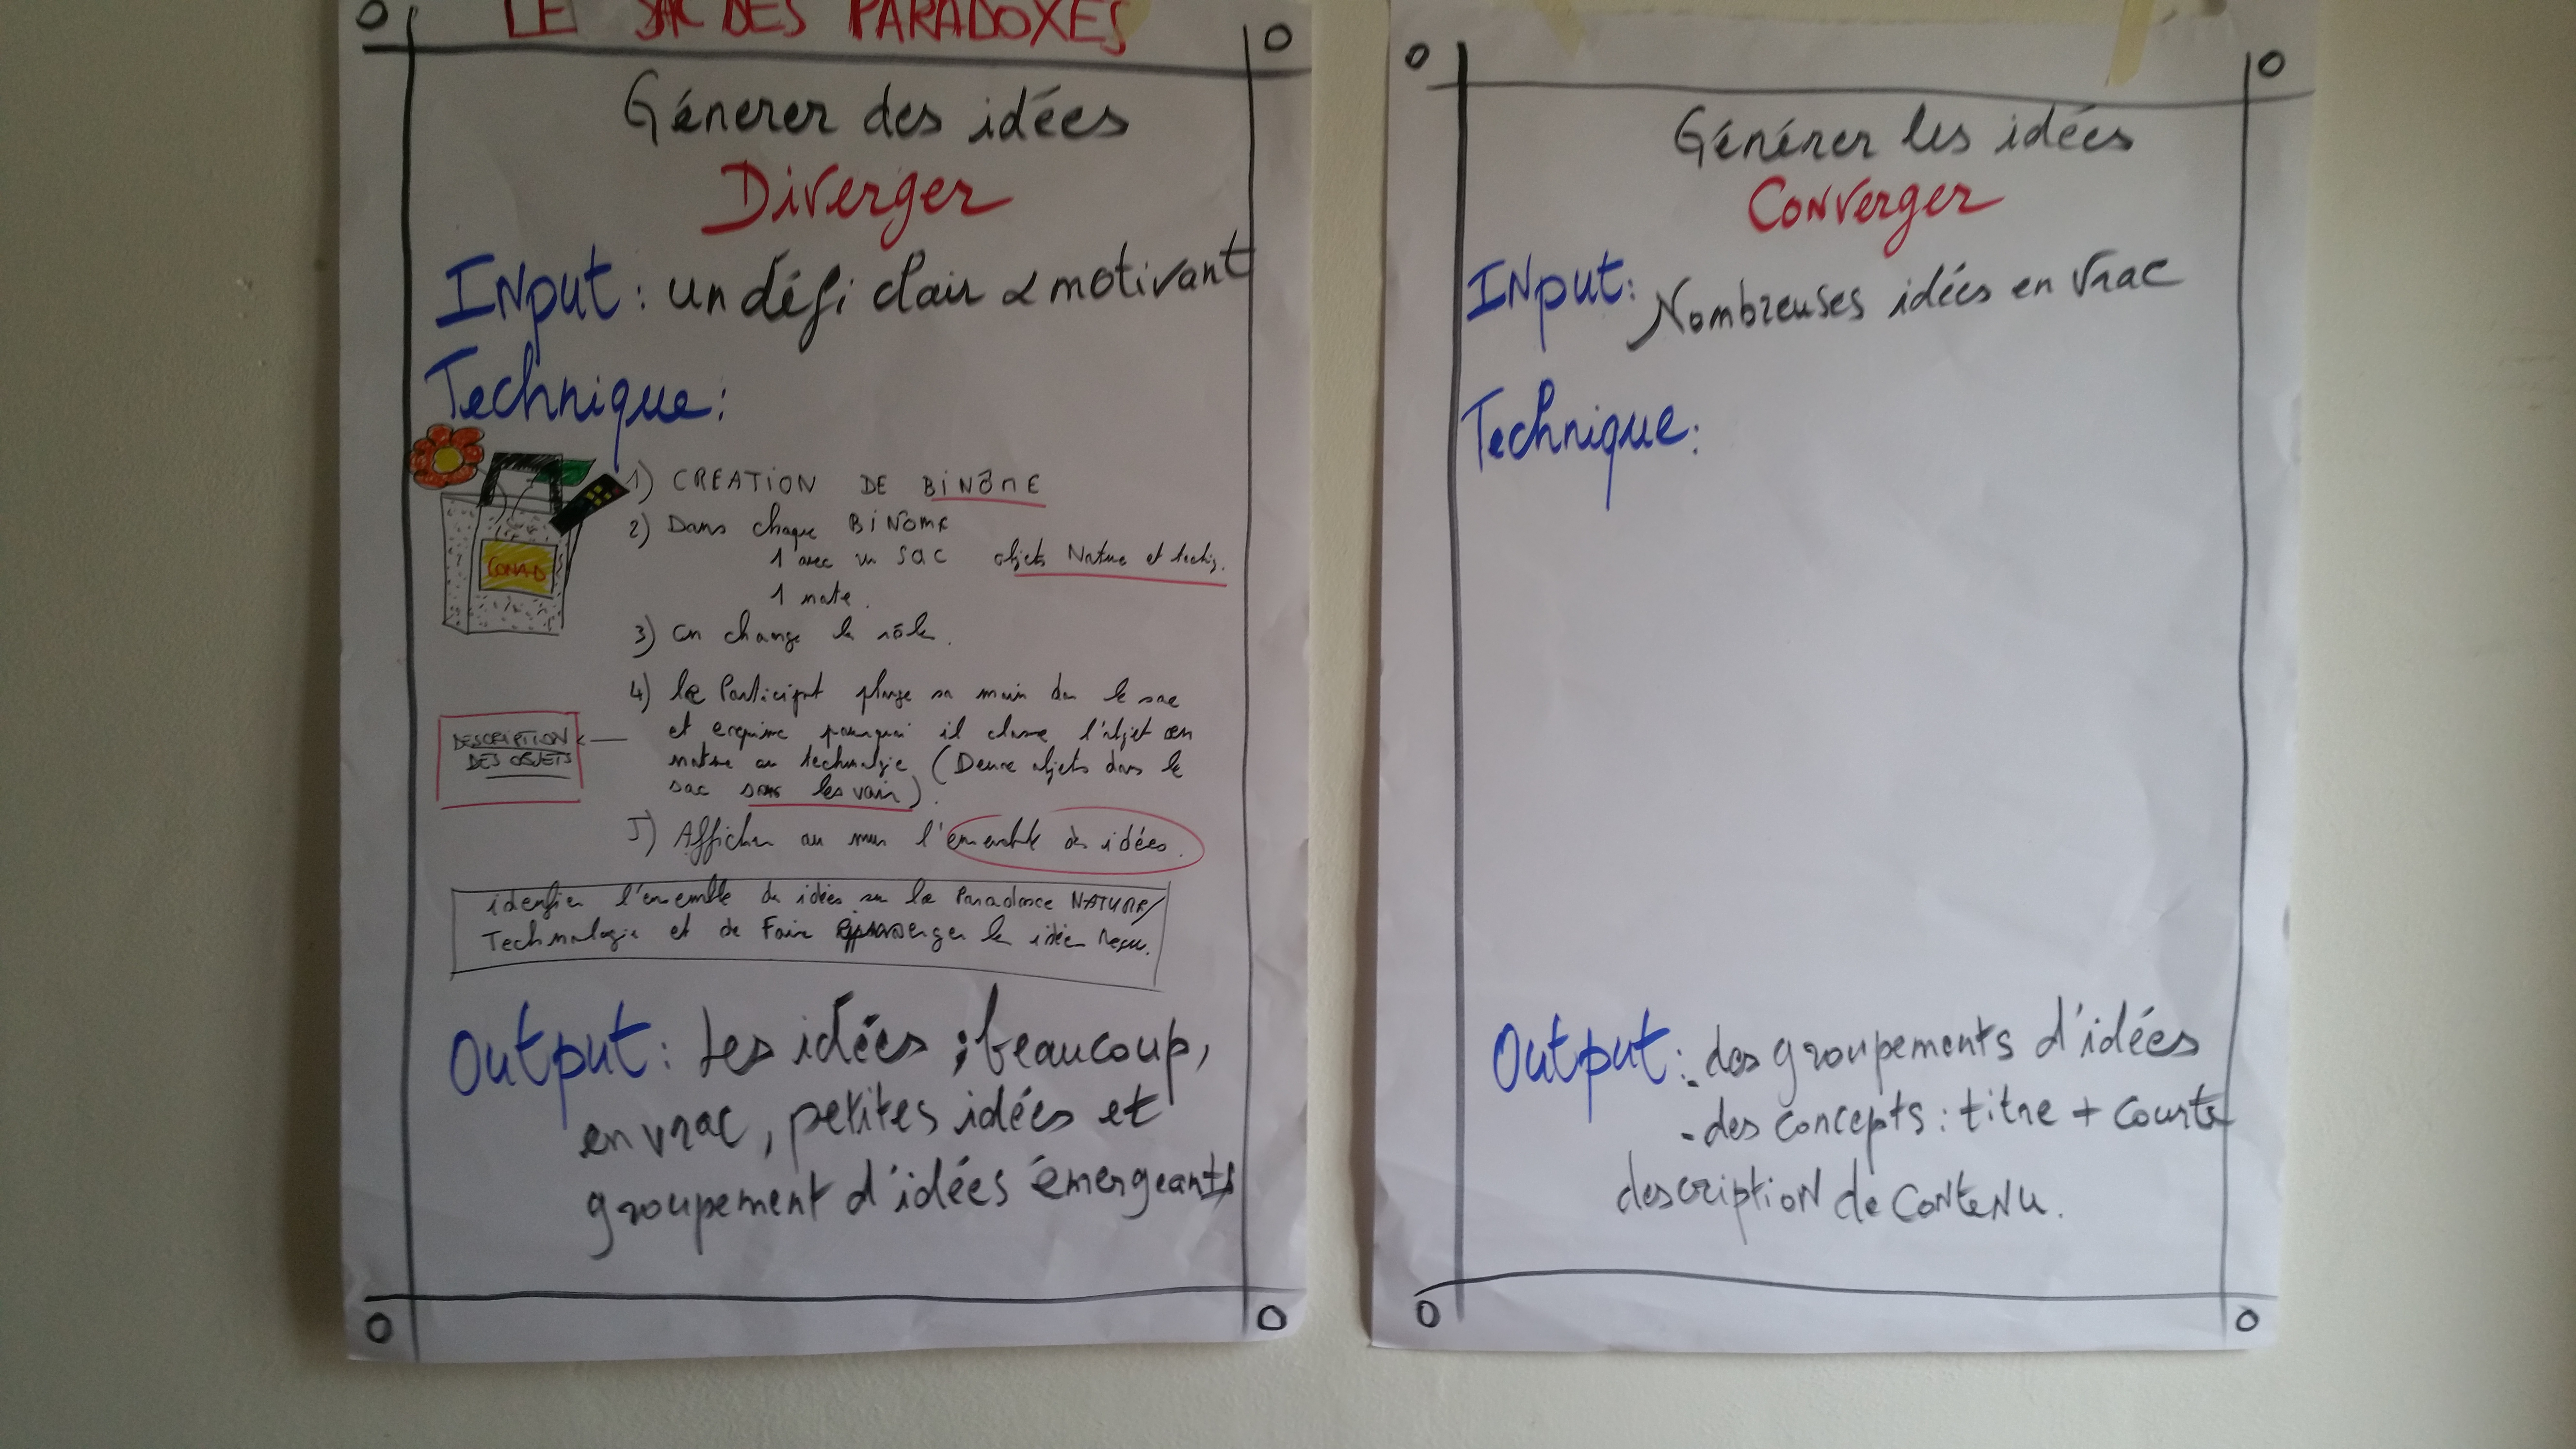 LE SAC DES PARADOXES
Génerer des idées
Diverger
INput: un défi clair & motivant
Technique:
CONAD
1) CREATION DE BiNÔME
2) Dans chaque BiNOME
1 avec un SAC objets Nature et techn.
1 note.
3) on change le rôle.
4) le Participant plonge sa main dans le sac
et exprime pourquoi il classe l'objet en
nature ou technologie (Deux objets dans le
sac sans les voir).
DESCRIPTION
DES OBJETS
5) Afficher au mur l'ensemble des idées.
idenfier l'ensemble des idées sur le Paradoxe NATURE/
Technologie et de Faire émerger les idées
Output: Les idées ; beaucoup,
en vrac, petites idées et
groupement d'idées émergeants
Générer les idées
Converger
INput: Nombreuses idées en vrac
Technique:
Output: - des groupements d'idées
- des concepts: titre + courte
description de contenu.
O
O
O
O
O
O
O
O